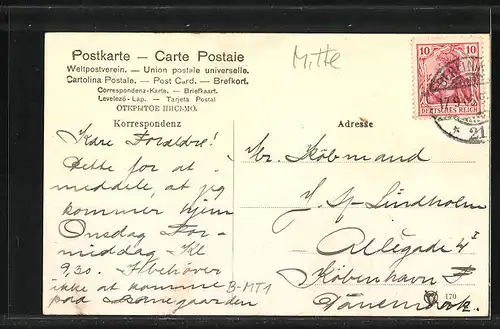 Postkarte — Carte Postale
Weltpostverein. — Union postale universelle.
Cartolina Postale. — Post Card. — Brefkort.
Correspondenz-Karte. — Briefkaart.
Levelező-Lap. — Tarjeta Postal
ОТКРЫТОЕ ПИСЬМО.
Korrespondenz
Adresse
Mitte
10 10
DEUTSCHES REICH
* 21
Kære Forældre!
Dette for at
meddele, at jeg
kommer hjem
Onsdag For-
middag Kl
9,30.
ikke at komme
paa Banegaarden
B-MT1
Hr. Købmand
J. Lindholm
Allégade 4 I
København F
Dänemark.
170